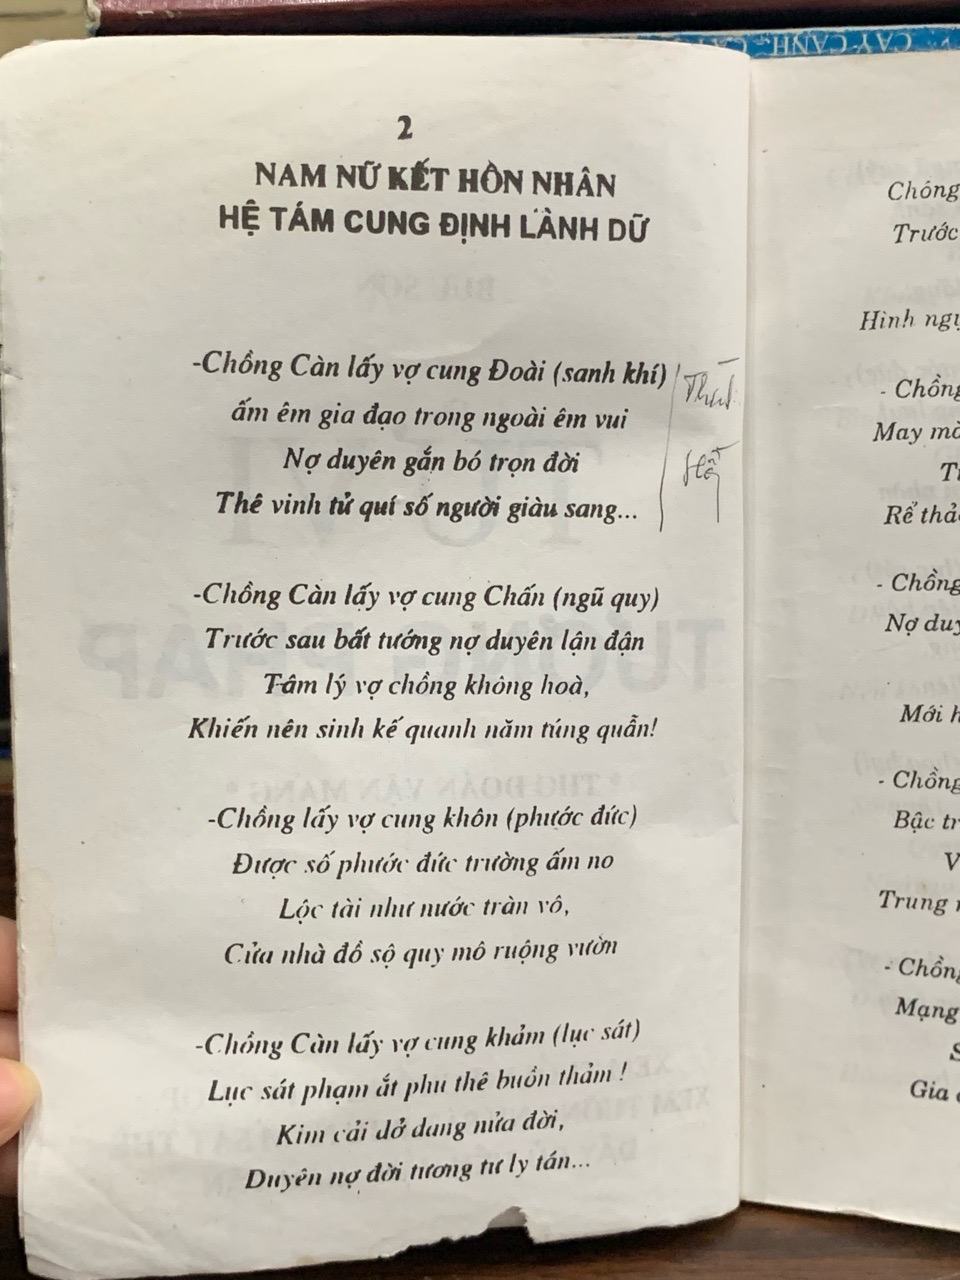 CÂY CẢNH
2
NAM NỮ KẾT HÒN NHÂN
HỆ TÁM CUNG ĐỊNH LÀNH DỮ
-Chồng Càn lấy vợ cung Đoài (sanh khí)
ấm êm gia đạo trong ngoài êm vui
Nợ duyên gắn bó trọn đời
Thê vinh tử quí số người giàu sang...
-Chồng Càn lấy vợ cung Chấn (ngũ quy)
Trước sau bất tướng nợ duyên lận đận
Tâm lý vợ chồng không hoà,
Khiến nên sinh kế quanh năm túng quẫn!
-Chồng lấy vợ cung khôn (phước đức)
Được số phước đức trường ấm no
Lộc tài như nước tràn vô,
Cửa nhà đồ sộ quy mô ruộng vườn
-Chồng Càn lấy vợ cung khảm (lục sát)
Lục sát phạm ắt phu thê buồn thảm !
Kim cải dở dang nửa đời,
Duyên nợ đời tương tư ly tán...
Chồng
Trước
Hình
- Chồng
May
Rể
- Chồng
Nợ
Mới
- Chồng
Bậc
Trung
- Chồng
Mạng
Gia